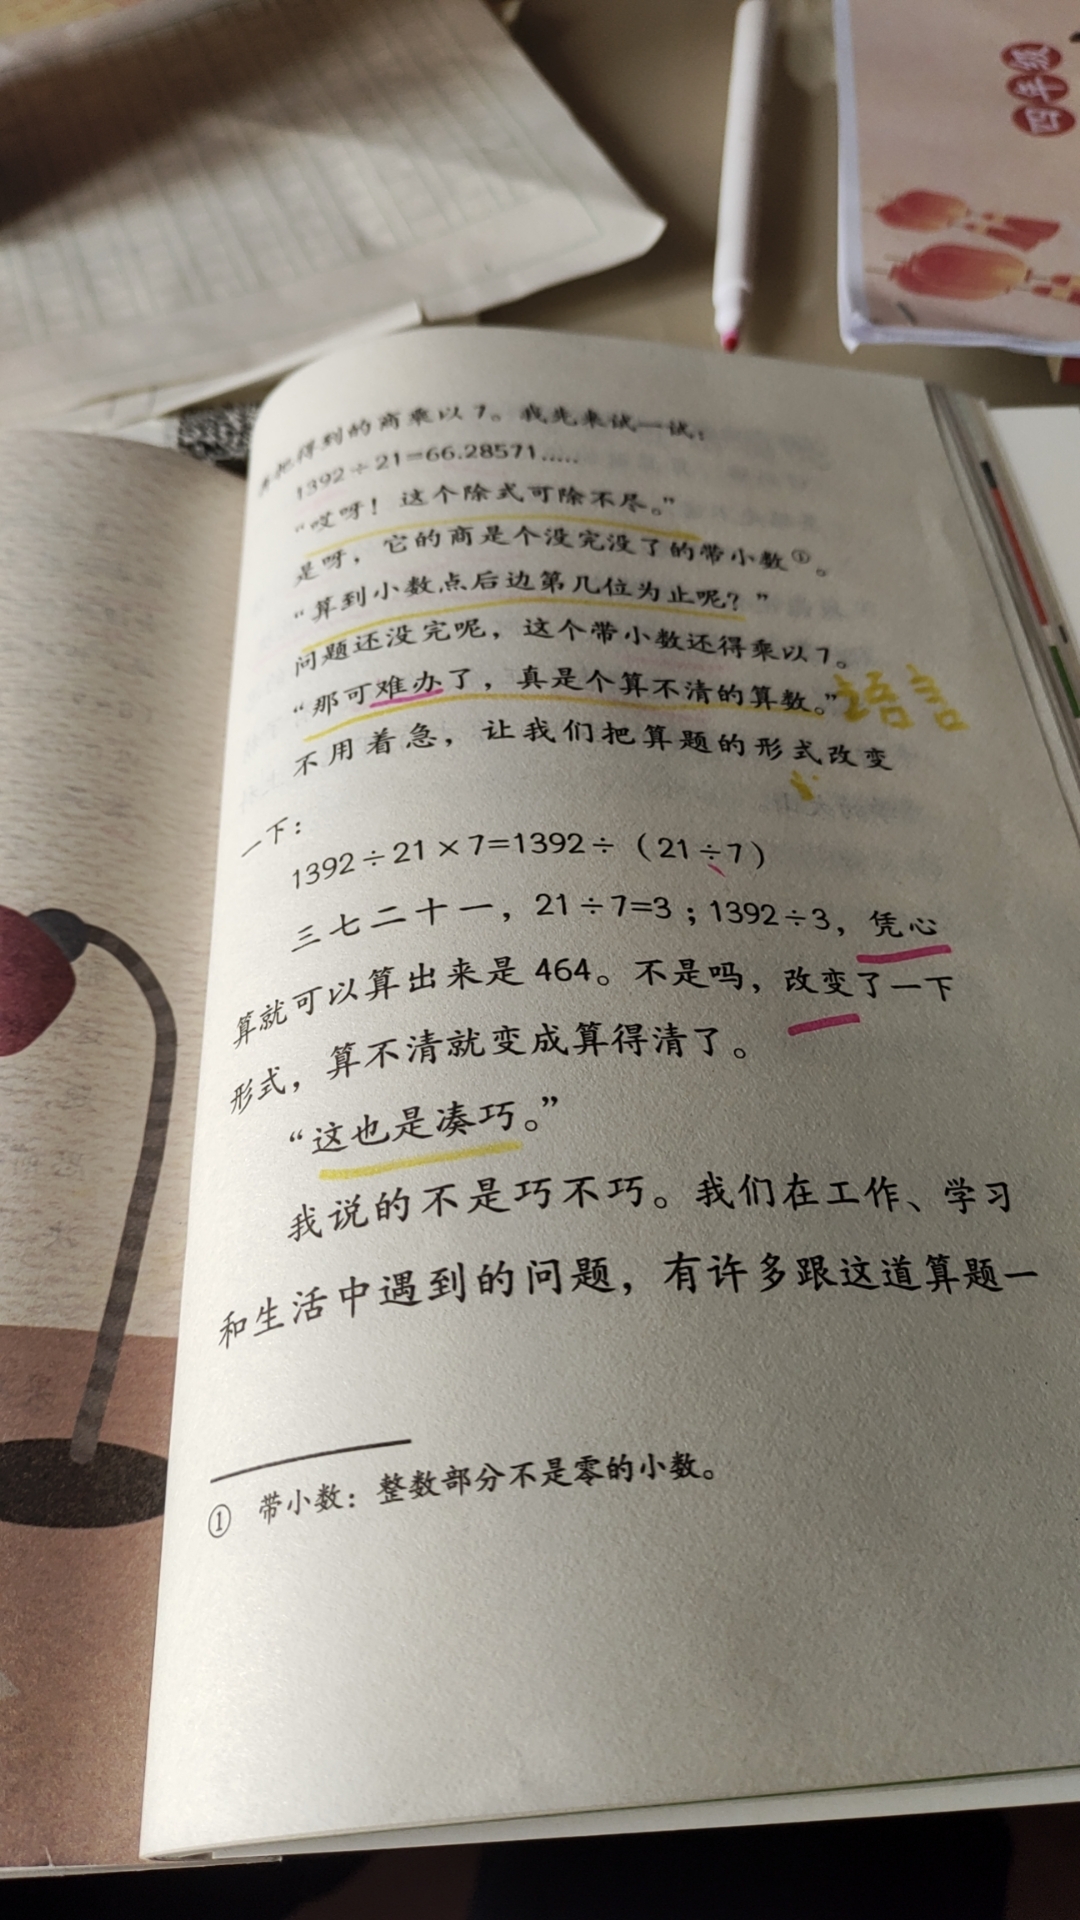 四年级
把得到的商乘以7。我先来试一试:
1392÷21=66.28571.....
“哎呀！这个除式可除不尽。”
是呀，它的商是个没完没了的带小数①。
“算到小数点后边第几位为止呢？”
问题还没完呢，这个带小数还得乘以7。
“那可难办了，真是个算不清的算数。”语言
不用着急，让我们把算题的形式改变
一下：
1392÷21×7=1392÷（21÷7）
三七二十一，21÷7=3；1392÷3，凭心
算就可以算出来是464。不是吗，改变了一下
形式，算不清就变成算得清了。
“这也是凑巧。”
我说的不是巧不巧。我们在工作、学习
和生活中遇到的问题，有许多跟这道算题一
① 带小数：整数部分不是零的小数。